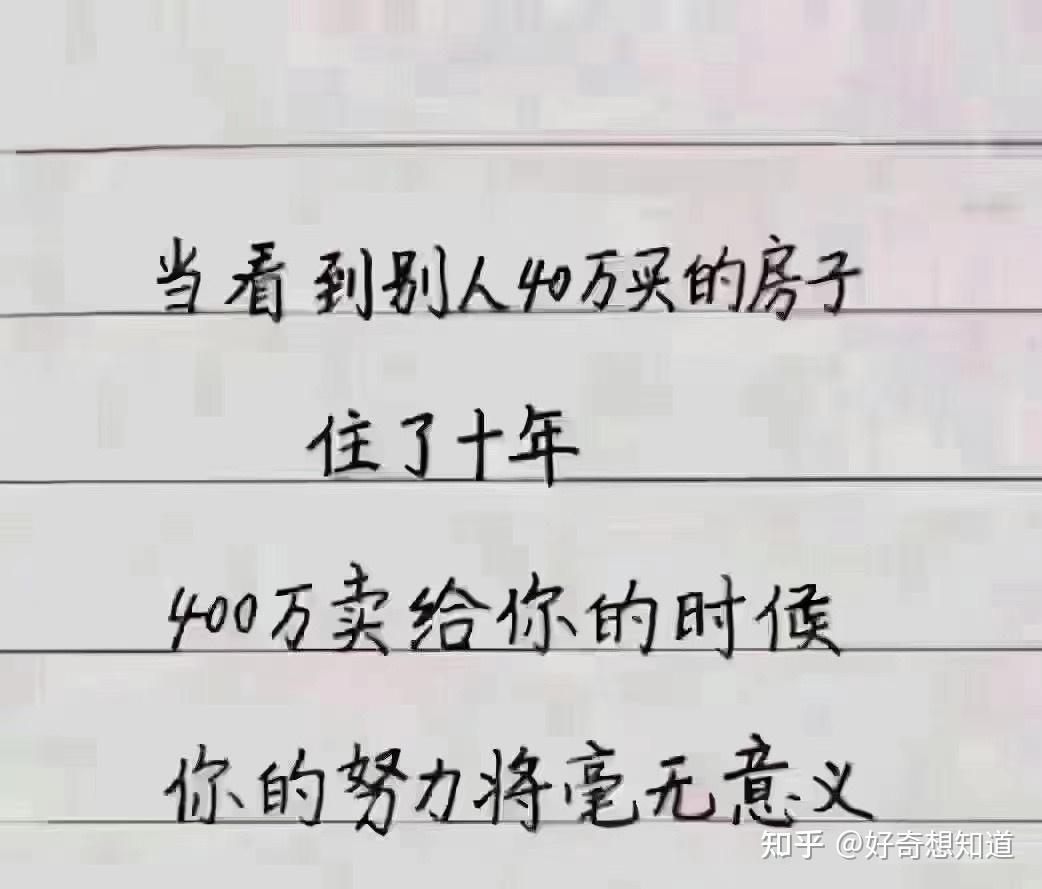 当看到别人40万买的房子
住了十年
400万卖给你的时候
你的努力将毫无意义
知乎 @好奇想知道